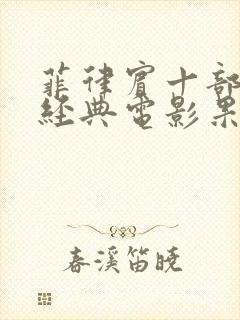 菲律賓十部
經典電影果
春溪笛曉